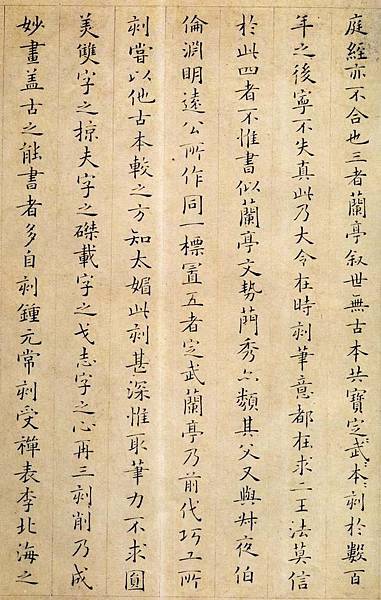 庭經亦不合也三者蘭亭叙世無古本共寶定〻武〻本〻刻於數百
年之後寧不失真此乃大令在時刻筆意都在求二王法莫信
於此四者不惟書似蘭亭文勢簡秀亦類其父又與叔夜伯
倫淵明遠公所作同一標置五者定武蘭亭乃前代巧工所
刻嘗以他古本較之方知太媚此刻甚深惟取筆力不求圓
美雙字之掠夫字之磔載字之戈志字之心再三刻削乃成
妙畫盖古之能書者多自刻鍾元常刻受禪表李北海之